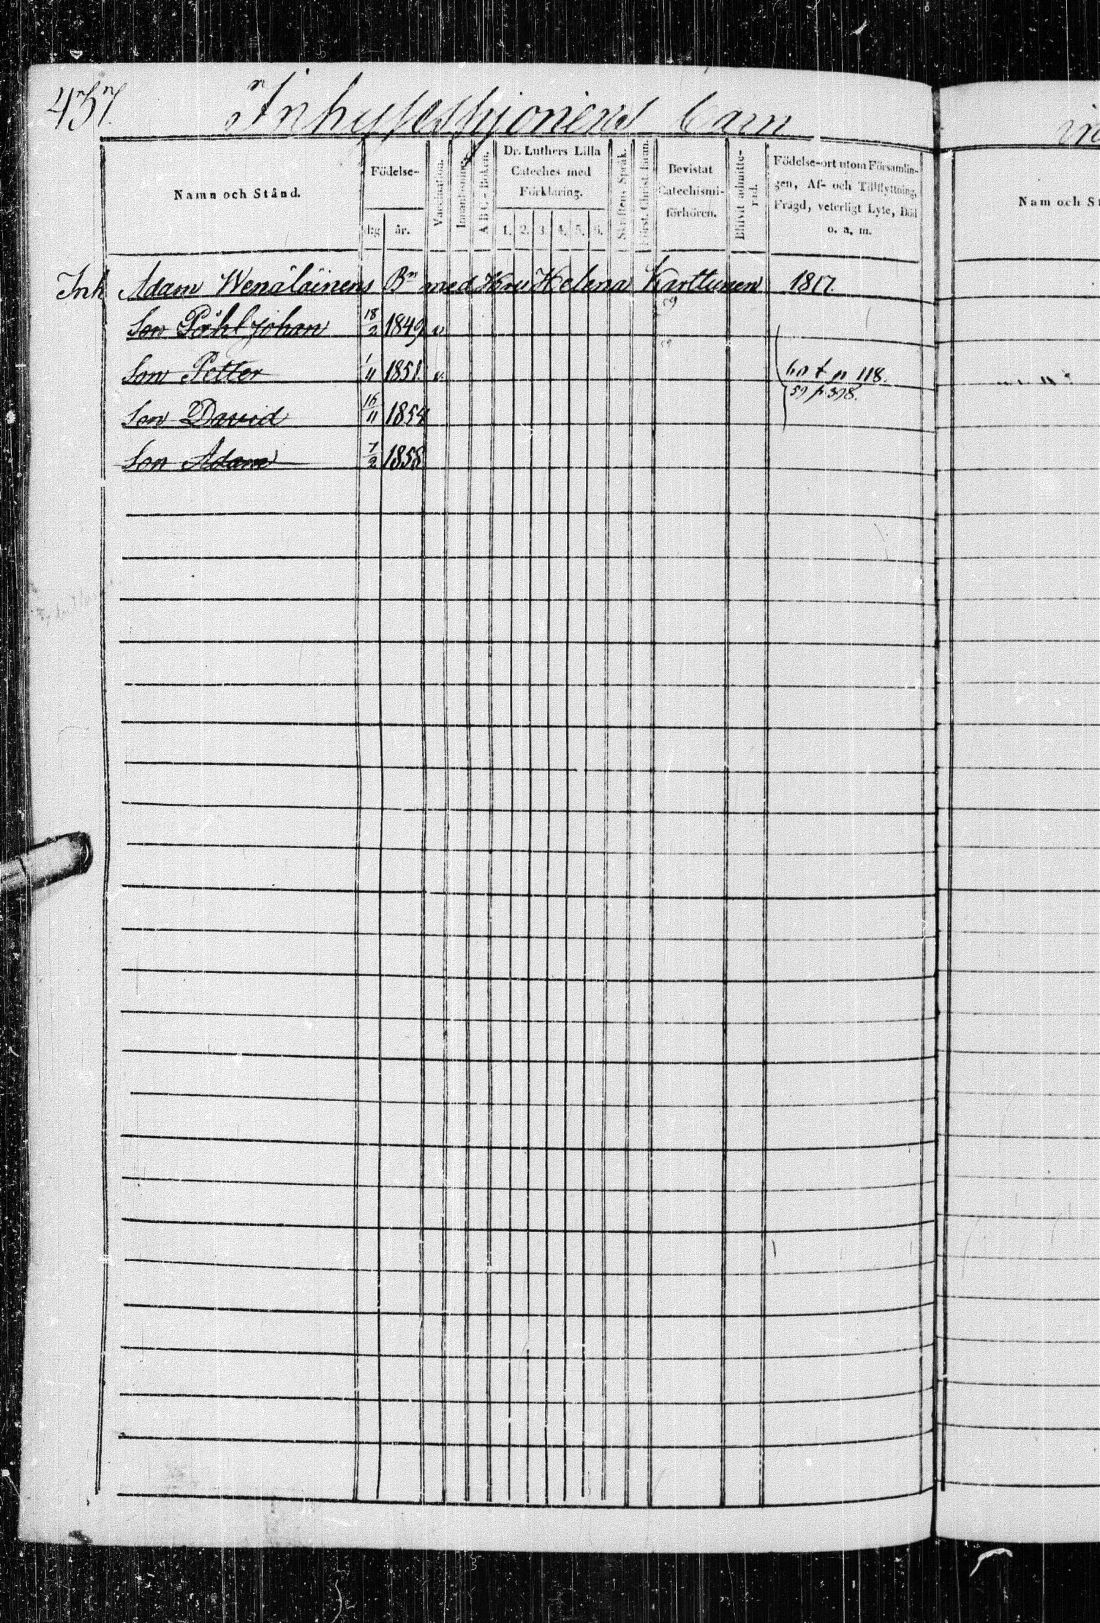 457.
Inhyseshjonens Barn
Namn och Stånd.
Födelse-
dag
år.
Vaccination.
Innanläsning.
A B C-Boken.
Dr. Luthers Lilla
Cateches med
Förklaring.
1. 2. 3. 4. 5. 6.
Skriftens Språk.
Först. Christ. däm.
Bevistat
Catechismi-
förhören.
Blifvit admitte-
rad.
Födelse-ort utom Församlin-
gen, Af- och Tillflyttning,
Frägd, veterligt Lyte, Död
o. a. m.
Nam och St
Inh Adam Wenäläinens Bn med Hru Helena Karttunen 1817
59
Son Påhl Johan 18/2 1849 v
Son Petter 1/11 1851 v.
60 t p 118.
59 p 398.
Son David 16/11 1854
Son Adam 7/2 1858